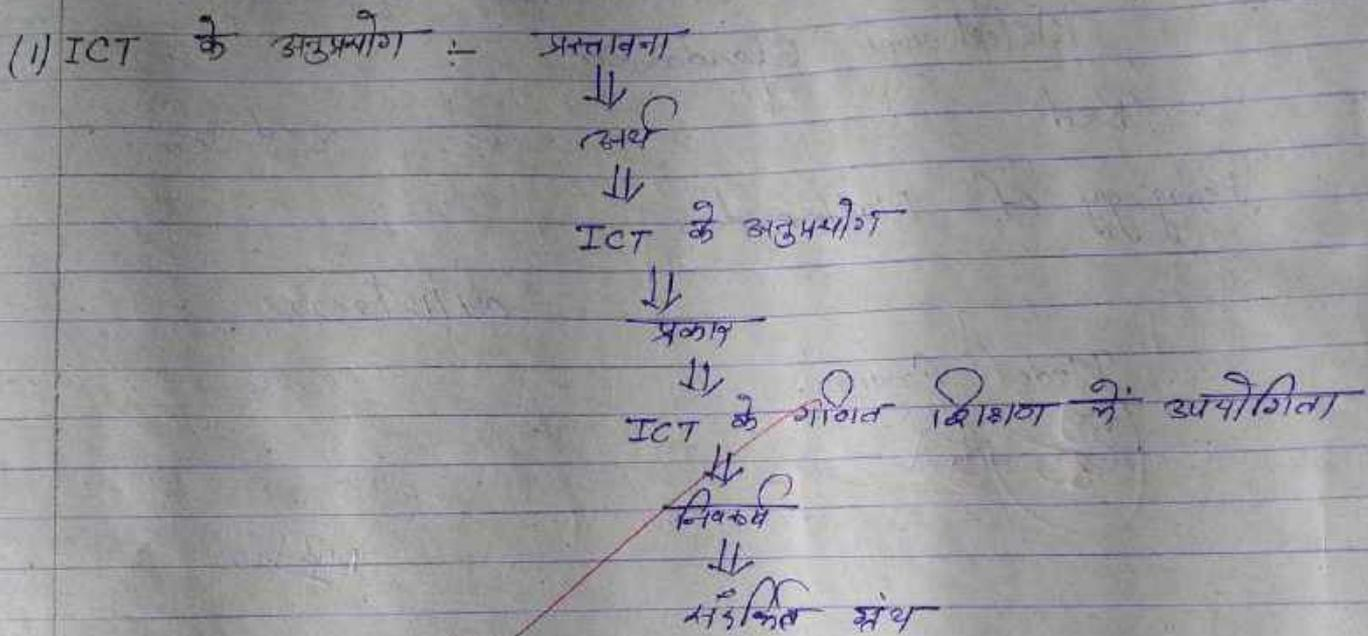 (1) ICT के अनुप्रयोग :- प्रस्तावना
⇓
अर्थ
⇓
ICT के अनुप्रयोग
⇓
प्रकार
⇓
ICT के गणित शिक्षण में उपयोगिता
⇓
निष्कर्ष
⇓
संदर्भित ग्रंथ